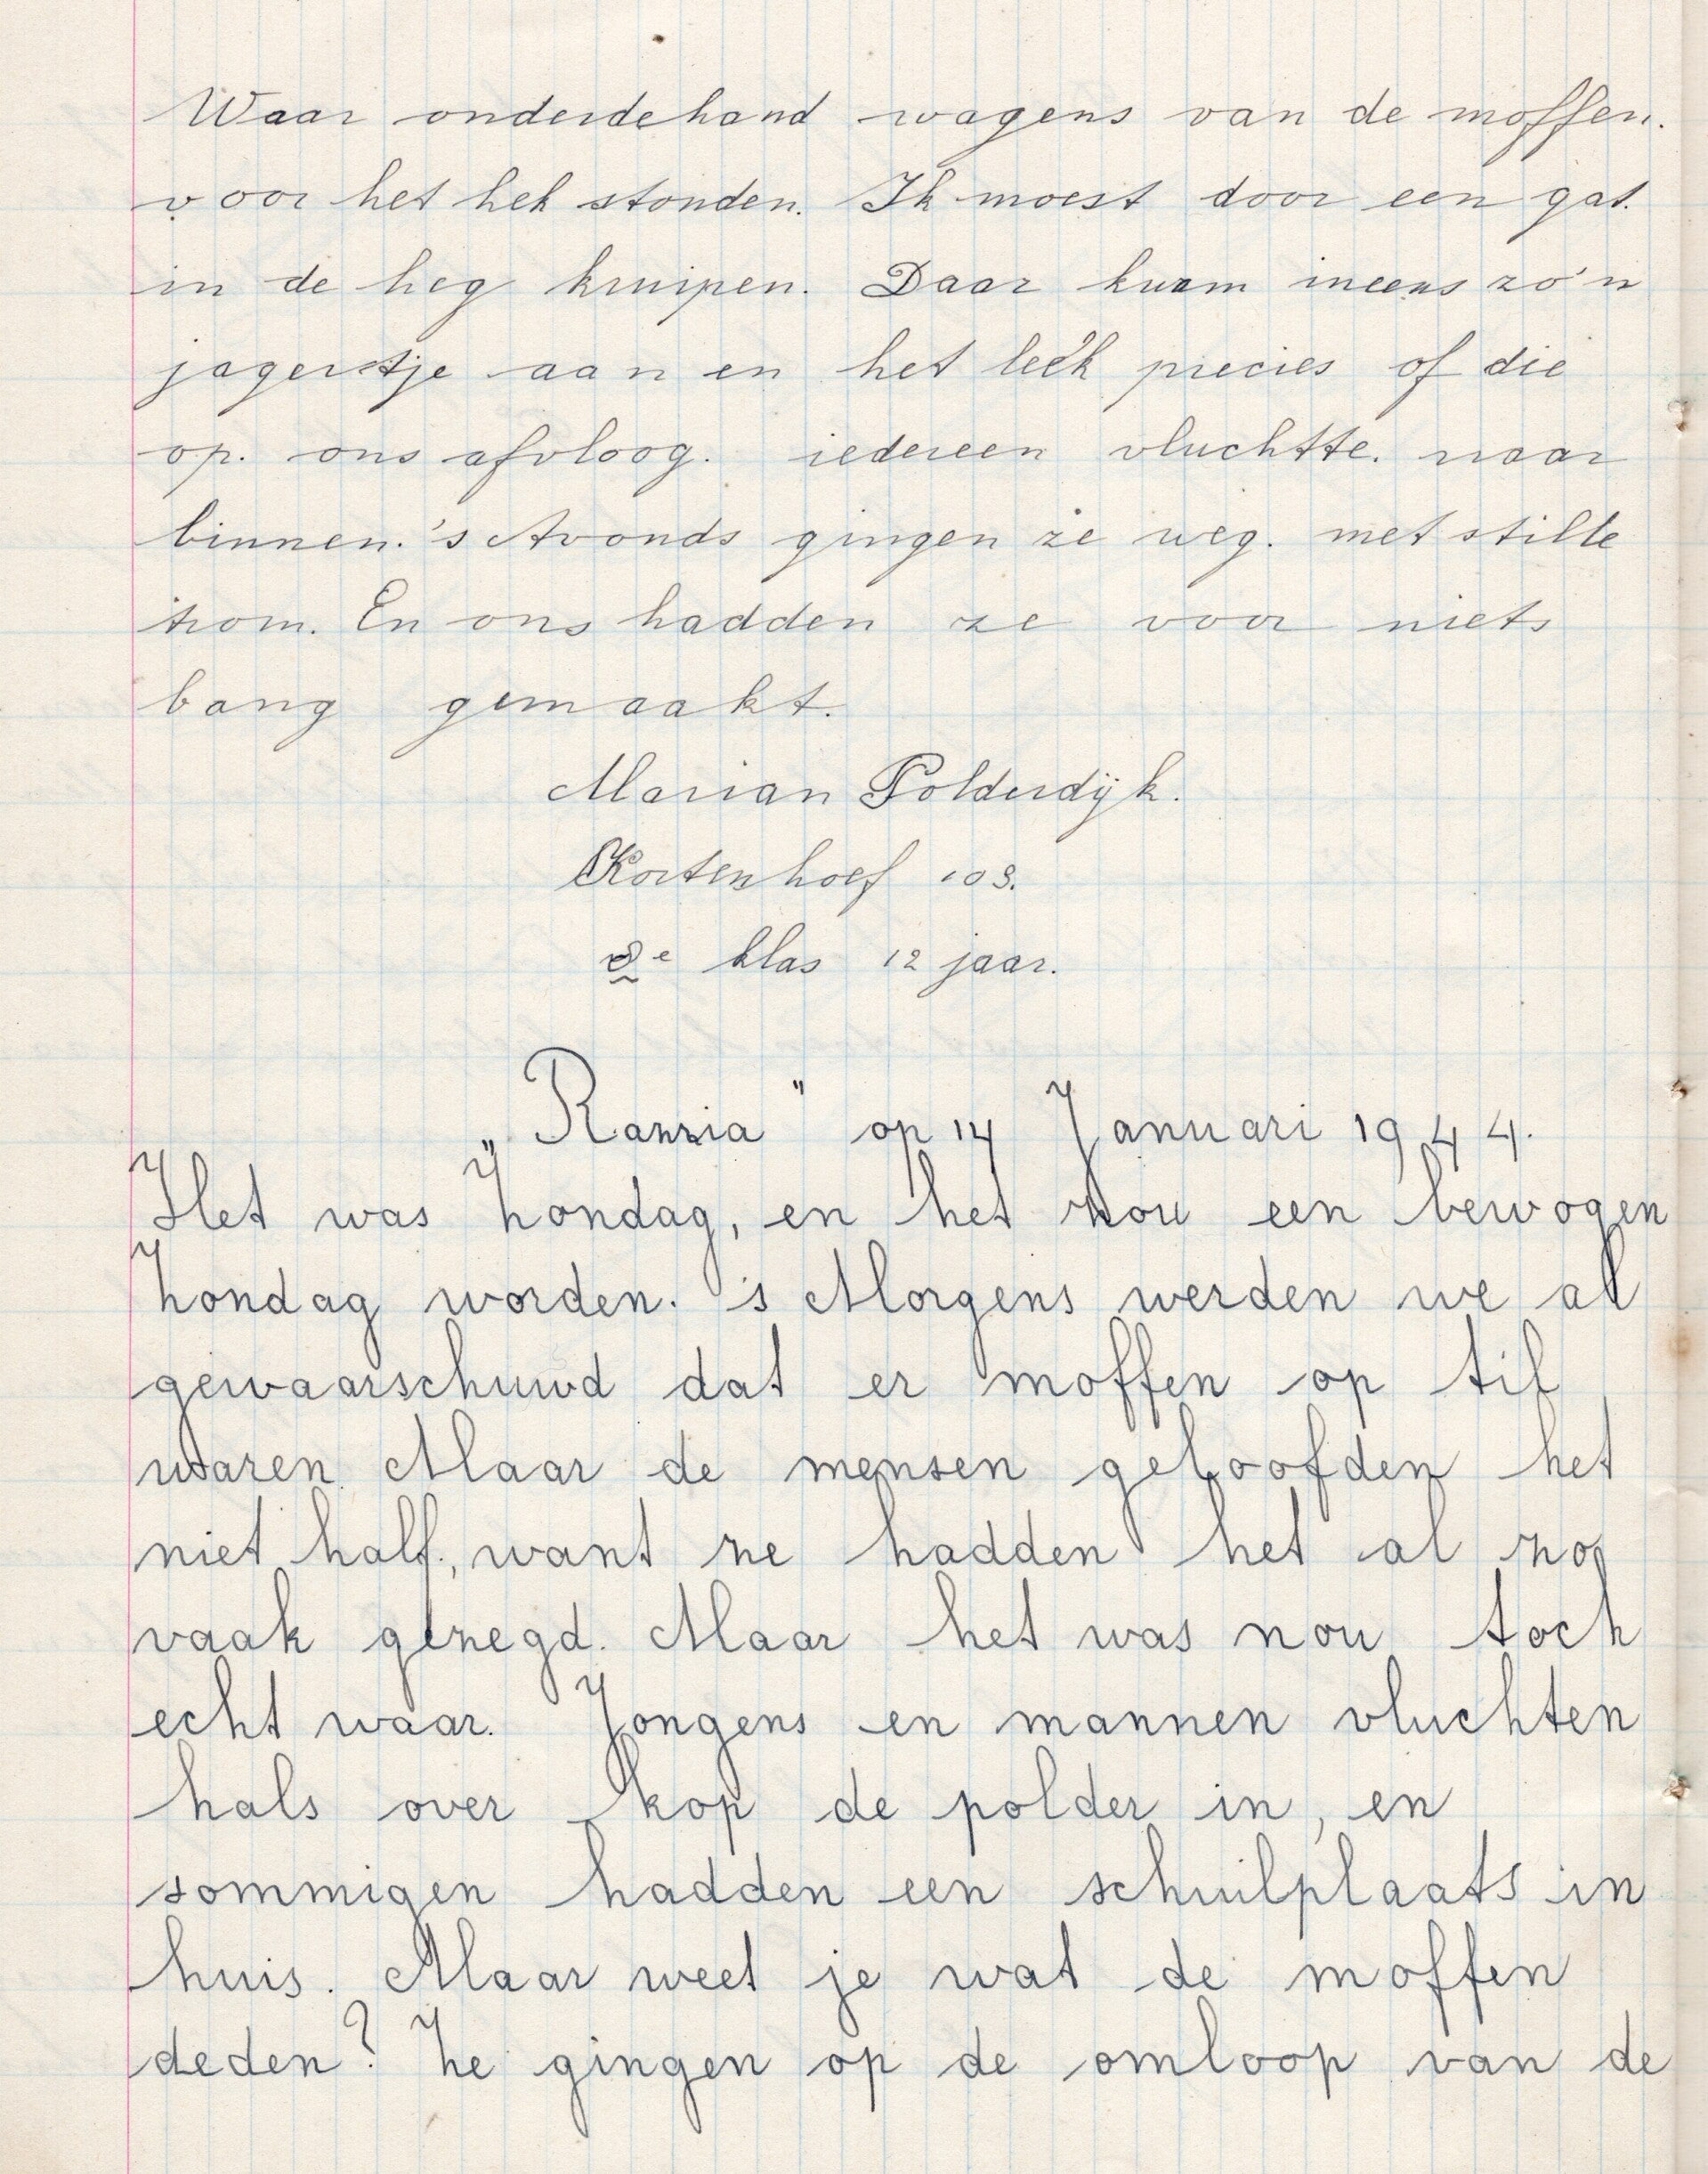 Waar onderdehand wagens van de moffen.
voor het hek stonden. Ik moest door een gat.
in de heg kruipen. Daar kwam ineens zo'n
jagerstje aan en het leek precies of die
op. ons afvloog. iedereen vluchtte. naar
binnen. 's Avonds gingen ze weg. met stille
trom. En ons hadden ze voor niets
bang gemaakt.
Marian Polderdijk.
Kortenhoef 103.
8e klas 12 jaar.
„Razzia" op 14 Januari 1944.
Het was Zondag, en het zou een bewogen
Zondag worden. 's Morgens werden we al
gewaarschuwd dat er moffen op til
waren. Maar de mensen geloofden het
niet half, want ze hadden het al zo
vaak gezegd. Maar het was nou toch
echt waar. Jongens en mannen vluchten
hals over kop de polder in, en
sommigen hadden een schuilplaats in
huis. Maar weet je wat de moffen
deden? Ze gingen op de omloop van de